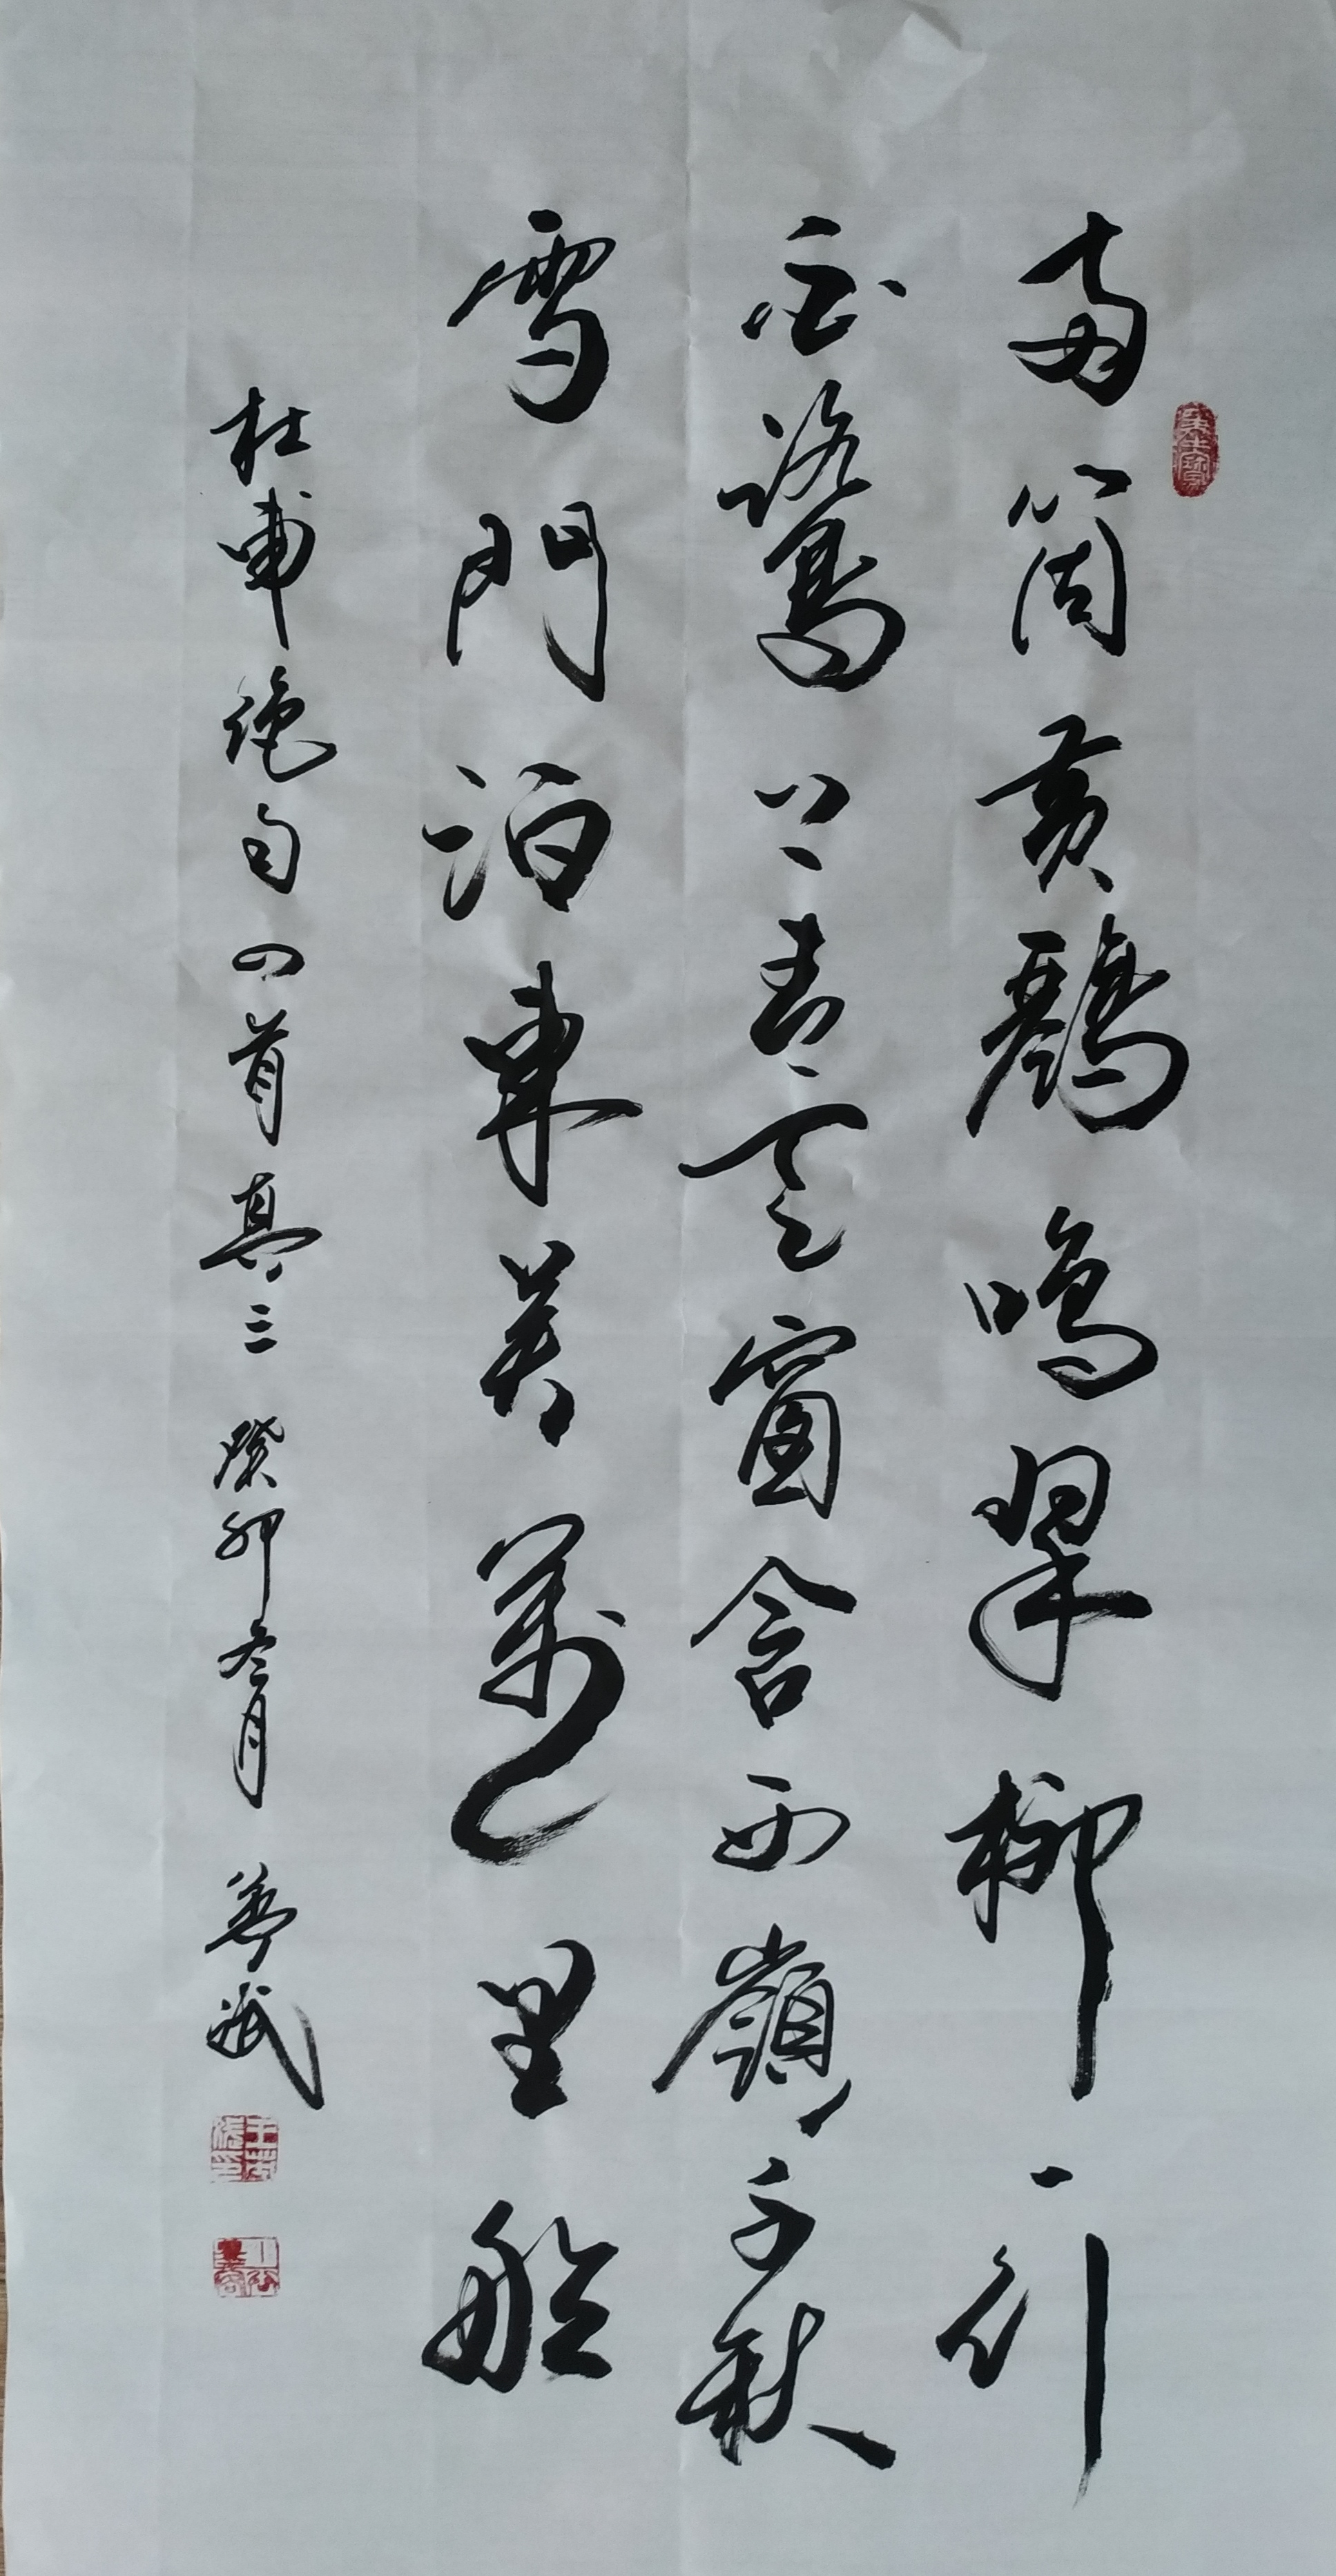 兩箇黃鸝鳴翠柳一行
白鷺上青天窗含西嶺千秋
雪門泊東吳萬里船
杜甫絕句四首其三 癸卯冬月